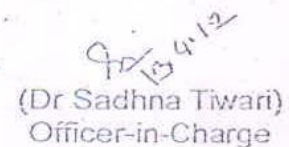 13.4.12
(Dr Sadhna Tiwari)
Officer-in-Charge